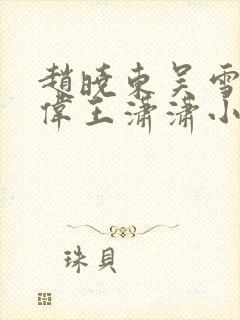 趙曉東吳雪
偉王瀟瀟小
珠貝